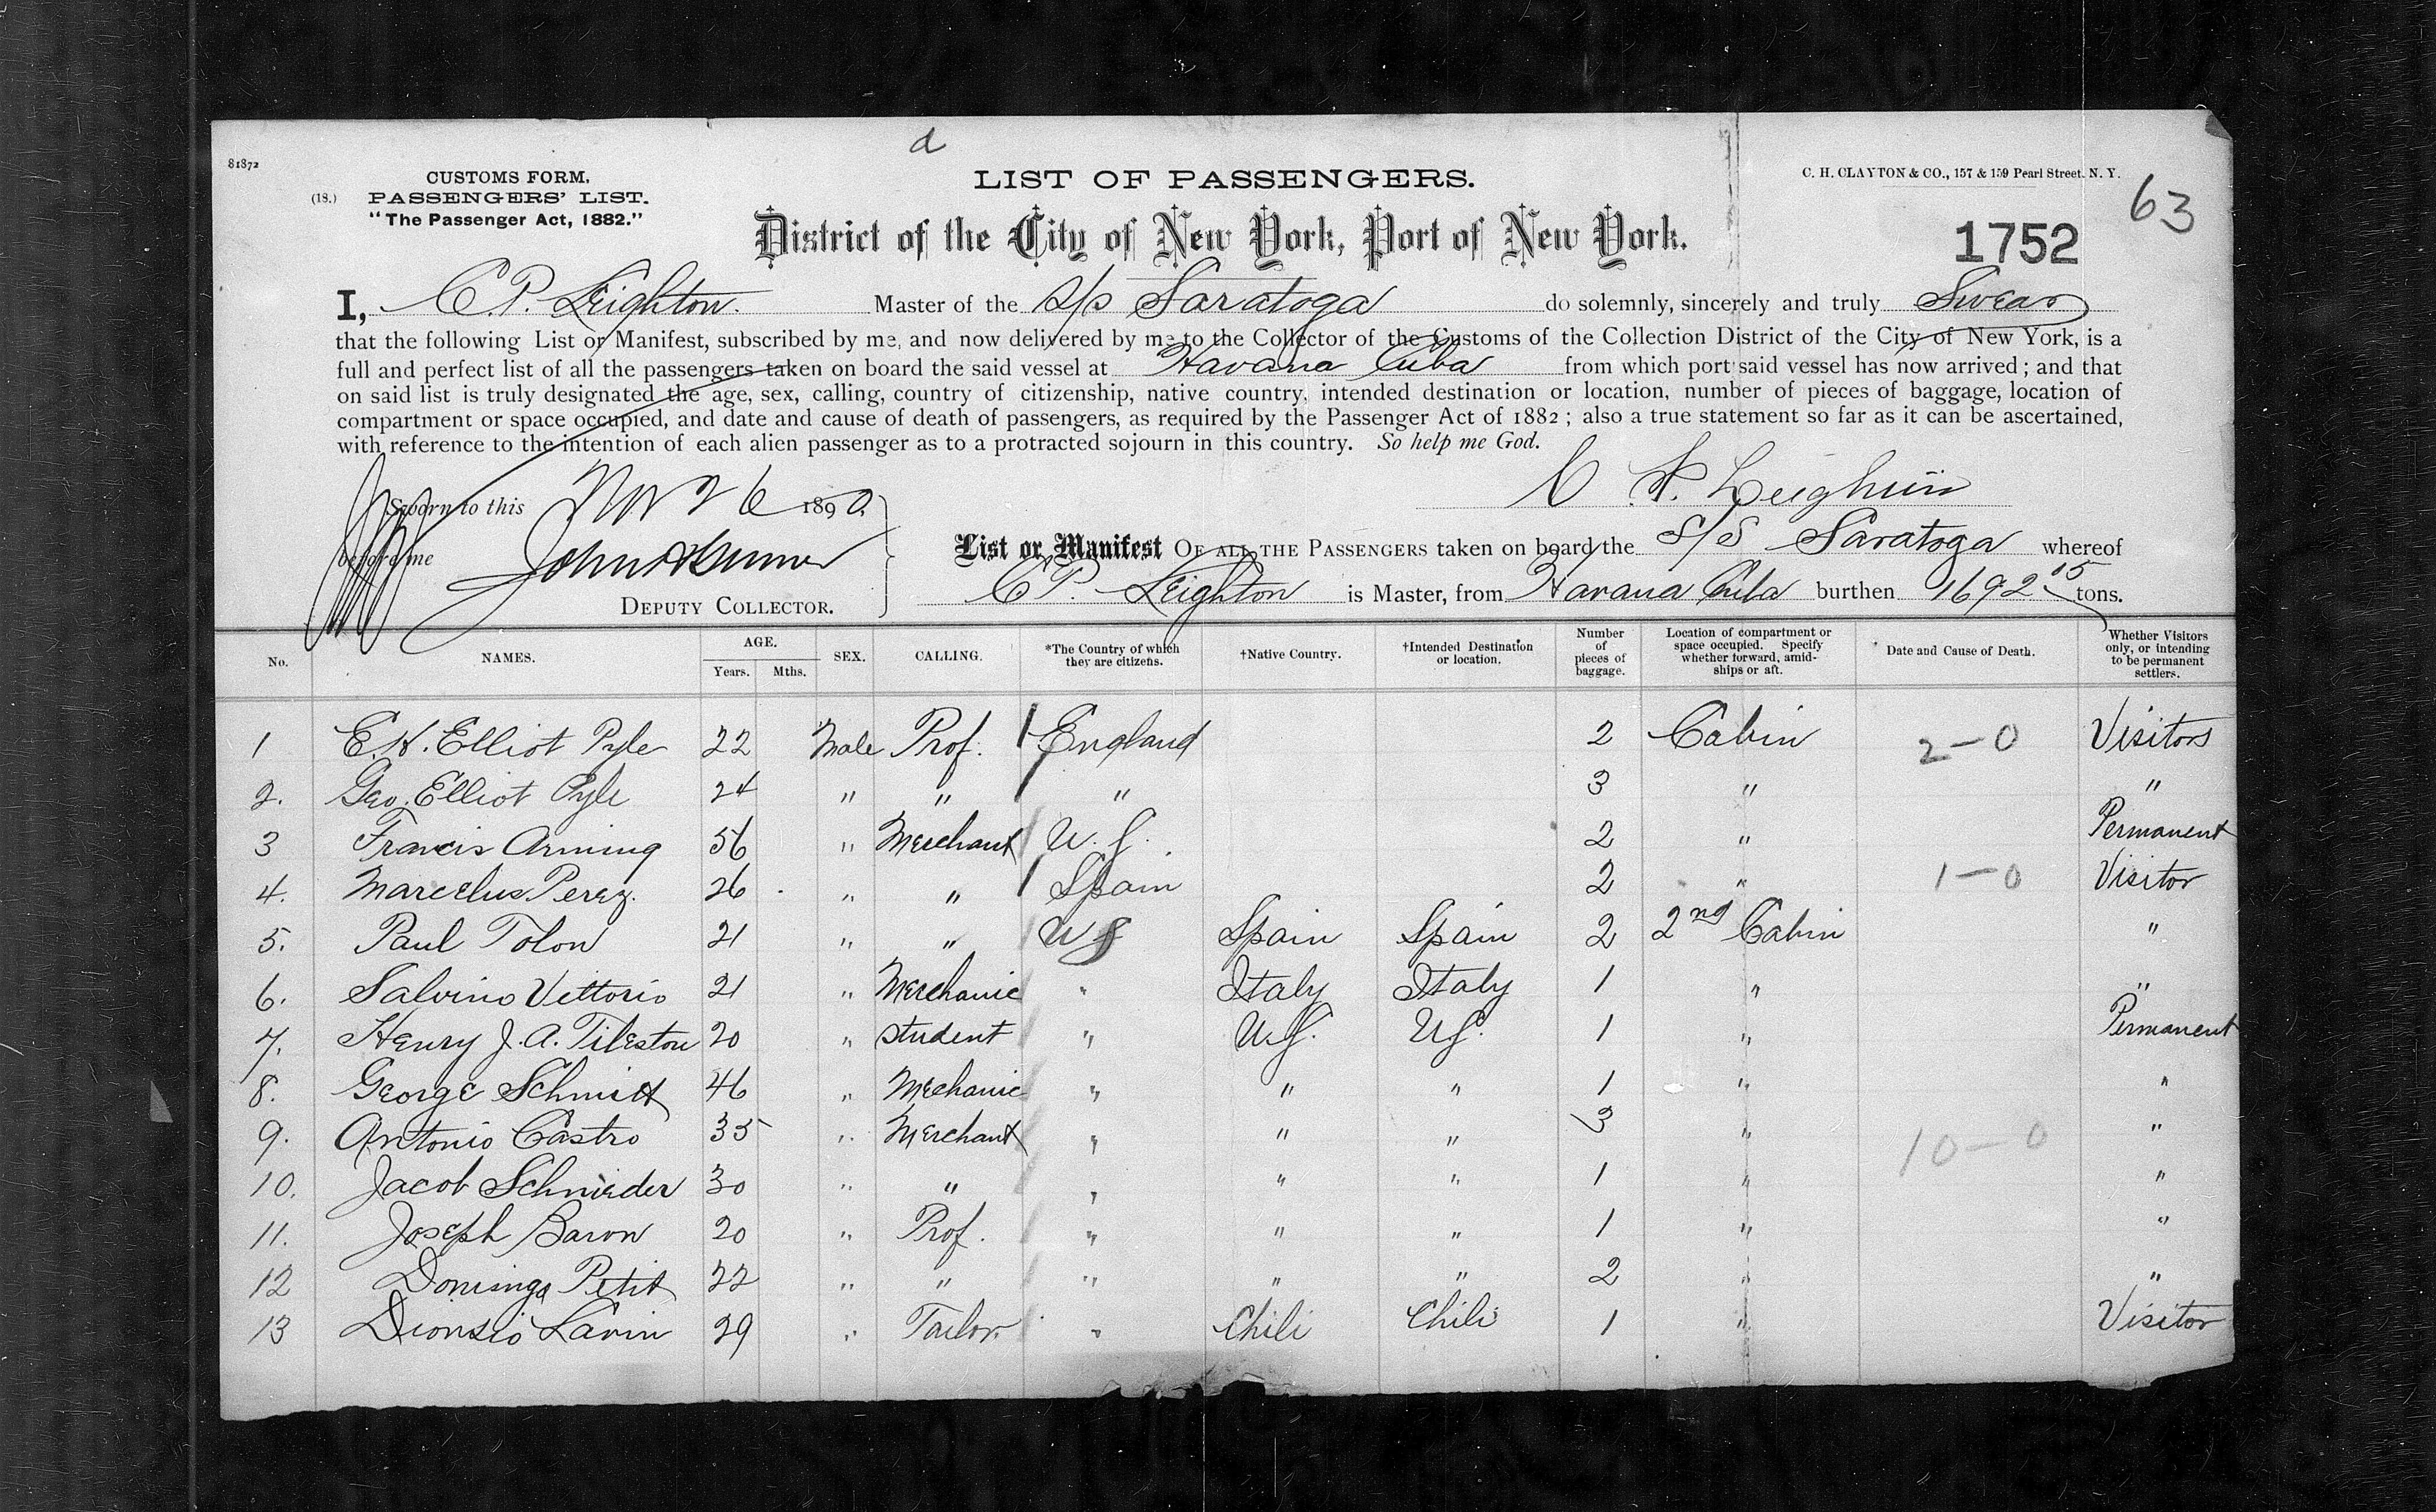 a
81872
CUSTOMS FORM.
(18.) PASSENGERS' LIST.
"The Passenger Act, 1882."
LIST OF PASSENGERS.
C. H. CLAYTON & CO., 157 & 159 Pearl Street, N. Y.
63
District of the City of New York, Port of New York.
1752
I, C.P. Leighton. Master of the s/s Saratoga do solemnly, sincerely and truly Swear
that the following List or Manifest, subscribed by me, and now delivered by me to the Collector of the Customs of the Collection District of the City of New York, is a
full and perfect list of all the passengers taken on board the said vessel at Havana Cuba from which port said vessel has now arrived; and that
on said list is truly designated the age, sex, calling, country of citizenship, native country, intended destination or location, number of pieces of baggage, location of
compartment or space occupied, and date and cause of death of passengers, as required by the Passenger Act of 1882; also a true statement so far as it can be ascertained,
with reference to the intention of each alien passenger as to a protracted sojourn in this country. So help me God.
C. P. Leighton
Sworn to this Nov 26 1890.
before me
DEPUTY COLLECTOR.
List or Manifest OF ALL THE PASSENGERS taken on board the S/S Saratoga whereof
C P. Leighton is Master, from Havana Cuba burthen 1692 15 tons.
No. NAMES. AGE. Years. Mths. SEX. CALLING. *The Country of which they are citizens. †Native Country. †Intended Destination or location. Number of pieces of baggage. Location of compartment or space occupied. Specify whether forward, amidships or aft. Date and Cause of Death. Whether Visitors only, or intending to be permanent settlers.
1 E.H. Elliot Pyle 22 Male Prof. England 2 Cabin 2-0 Visitors
2. Geo. Elliot Pyle 24 " " " 3 " "
3 Francis Arming 56 " Merchant U.S. 2 " Permanent
4. Marcelus Perez. 26 " " Spain 2 " 1-0 Visitor
5. Paul Tolon 21 " " U S Spain Spain 2 2nd Cabin "
6. Salvino Vittorio 21 " Merchanic " Italy Italy 1 " "
7. Henry J. A. Tileston 20 " Student " U.S. U.S. 1 " Permanent
8. George Schmitt 46 " Mechanic " " " 1 " "
9. Antonio Castro 35 " Merchant " " " 3 " 10-0 "
10. Jacob Schnieder 30 " " " " " 1 " "
11. Joseph Baron 20 " Prof. " " " 1 " "
12 Domingo Petit 22 " " " " " 2 " "
13 Dionsio Lavin 29 " Tailor. " Chili Chili 1 " Visitor